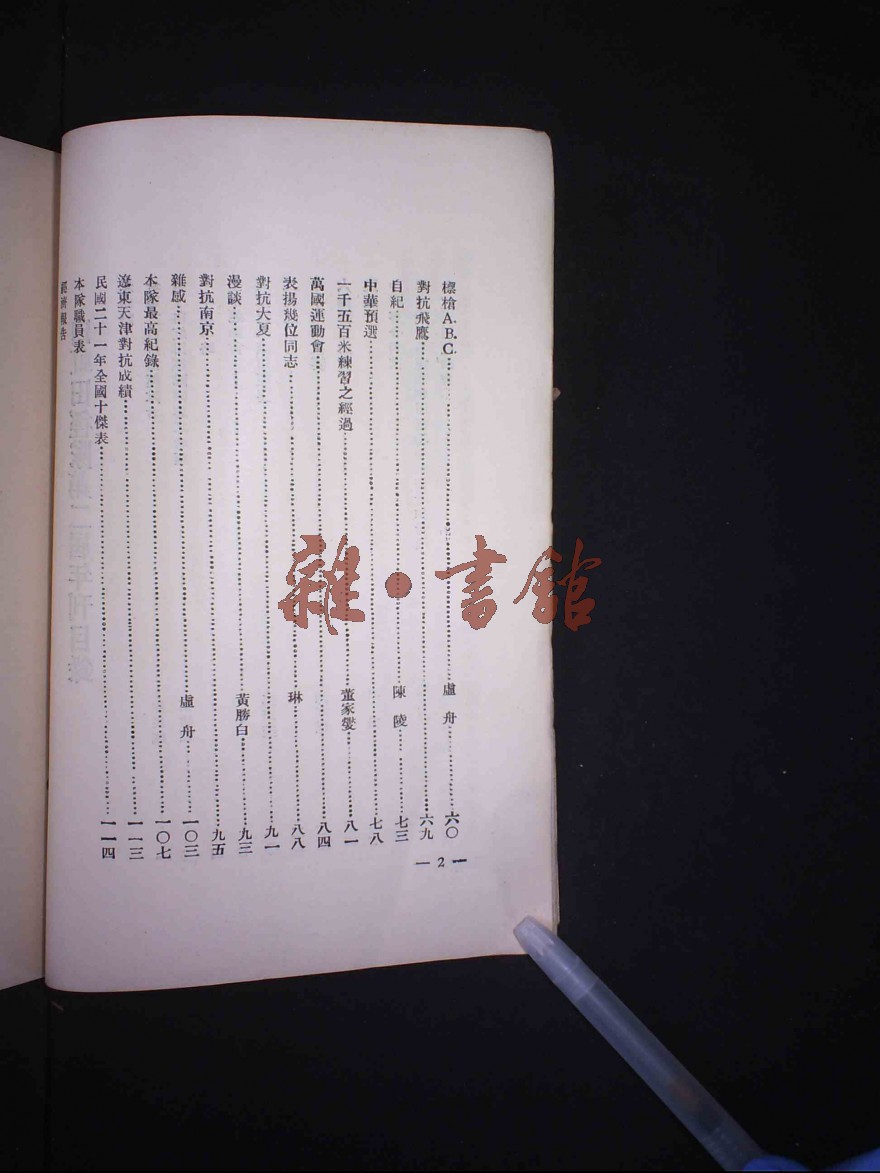 標槍A.B.C.……盧舟……六〇
對抗飛鷹……六九
自紀……陳陵……七三
中華預選……七八
一千五百米練習之經過……董家燮……八一
萬國運動會……八四
表揚幾位同志……琳……八八
對抗大夏……九一
漫談……黃勝白……九三
對抗南京……九五
雜感……盧舟……一〇三
本隊最高紀錄……一〇七
遼東天津對抗成績……一一三
民國二十一年全國十傑表……一一四
本隊職員表
經濟報告
— 2 —
雜·書館